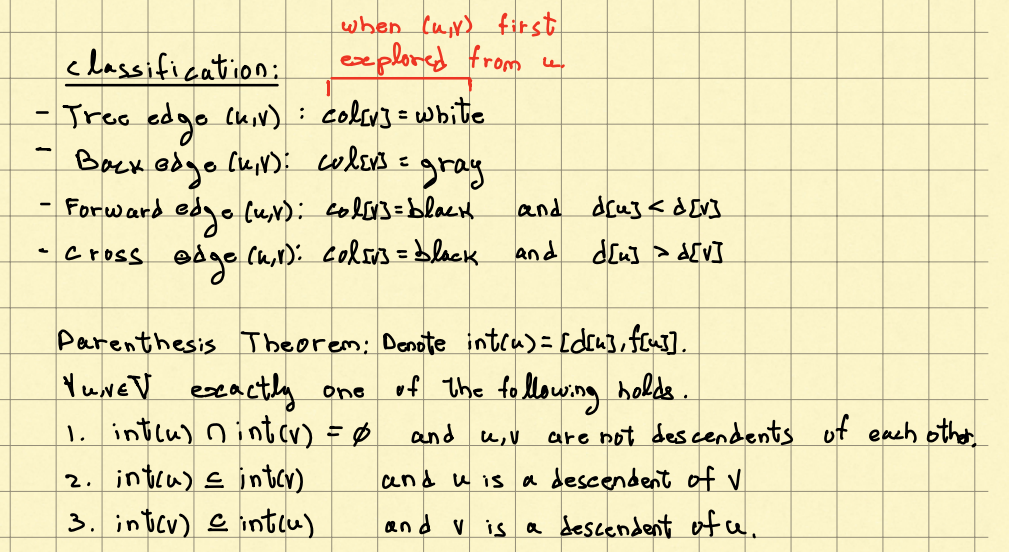 when (u,v) first
explored from u.
classification:
- Tree edge (u,v) : col[v] = white
- Back edge (u,v): col[v] = gray
- Forward edge (u,v): col[v] = black and d[u] < d[v]
- cross edge (u,v): col[v] = black and d[u] > d[v]
Parenthesis Theorem: Denote int(u) = [d[u], f[u]].
∀u,v∈V exactly one of the following holds.
1. int(u) ∩ int(v) = ∅ and u,v are not descendents of each other.
2. int(u) ⊆ int(v) and u is a descendent of v
3. int(v) ⊆ int(u) and v is a descendent of u.